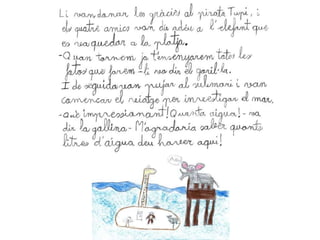 Li van donar les gràcies al pirata Tupi, i
els quatre amics van dir adéu a l'elefant que
es va quedar a la platja.
-Quan tornem ja t'ensenyarem totes les
fotos que farem- li va dir el goril·la.
I de seguida van pujar al submarí i van
començar el viatge per investigar el mar.
-Què impressionant! Quanta aigua!- va
dir la gallina- M'agradaria saber quants
litres d'aigua deu haver aquí!